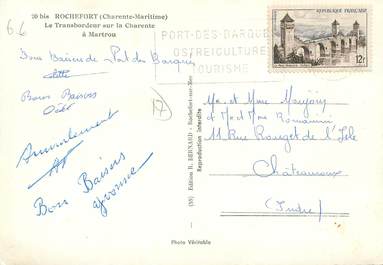 66
20 bis ROCHEFORT (Charente-Maritime)
Le Transbordeur sur la Charente
à Martrou
PORT-DES-BARQUES
OSTREICULTURE
TOURISME
RÉPUBLIQUE FRANÇAISE
12f
Bons Baisers de Port des Barques
Bons Baisers
Amicalement
Bon Baisers
Yvonne
17
(55) Edition R. BERNARD - Rochefort-sur-Mer
Reproduction interdite
Mr et Mme
et Mr et Mme Romanini
11 Rue Rouget de l'Isle
Châteauroux
(Indre)
Photo Véritable